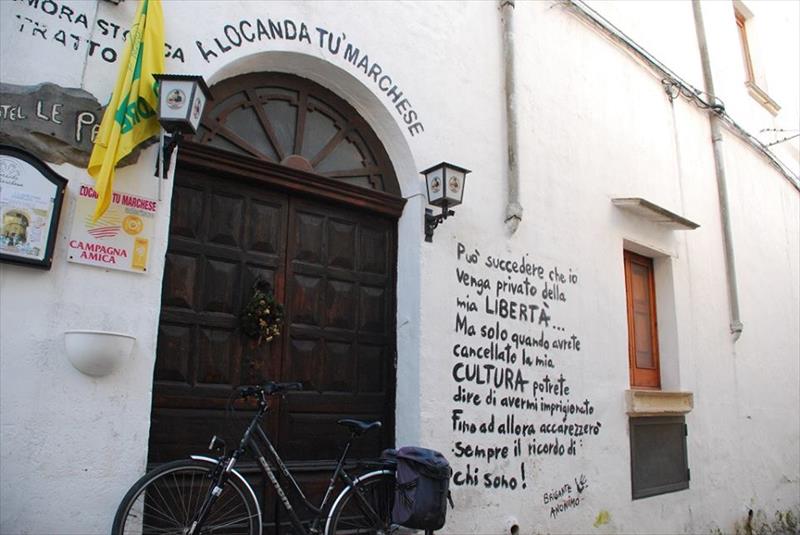 MORA STO
TRATTO
A LOCANDA TU' MARCHESE
LE
LOCANDA TU MARCHESE
CAMPAGNA
AMICA
Può succedere che io
venga privato della
mia LIBERTÀ...
Ma solo quando avrete
cancellato la mia
CULTURA potrete
dire di avermi imprigionato
Fino ad allora accarezzerò
sempre il ricordo di
chi sono!
BRIGANTE
ANONIMO